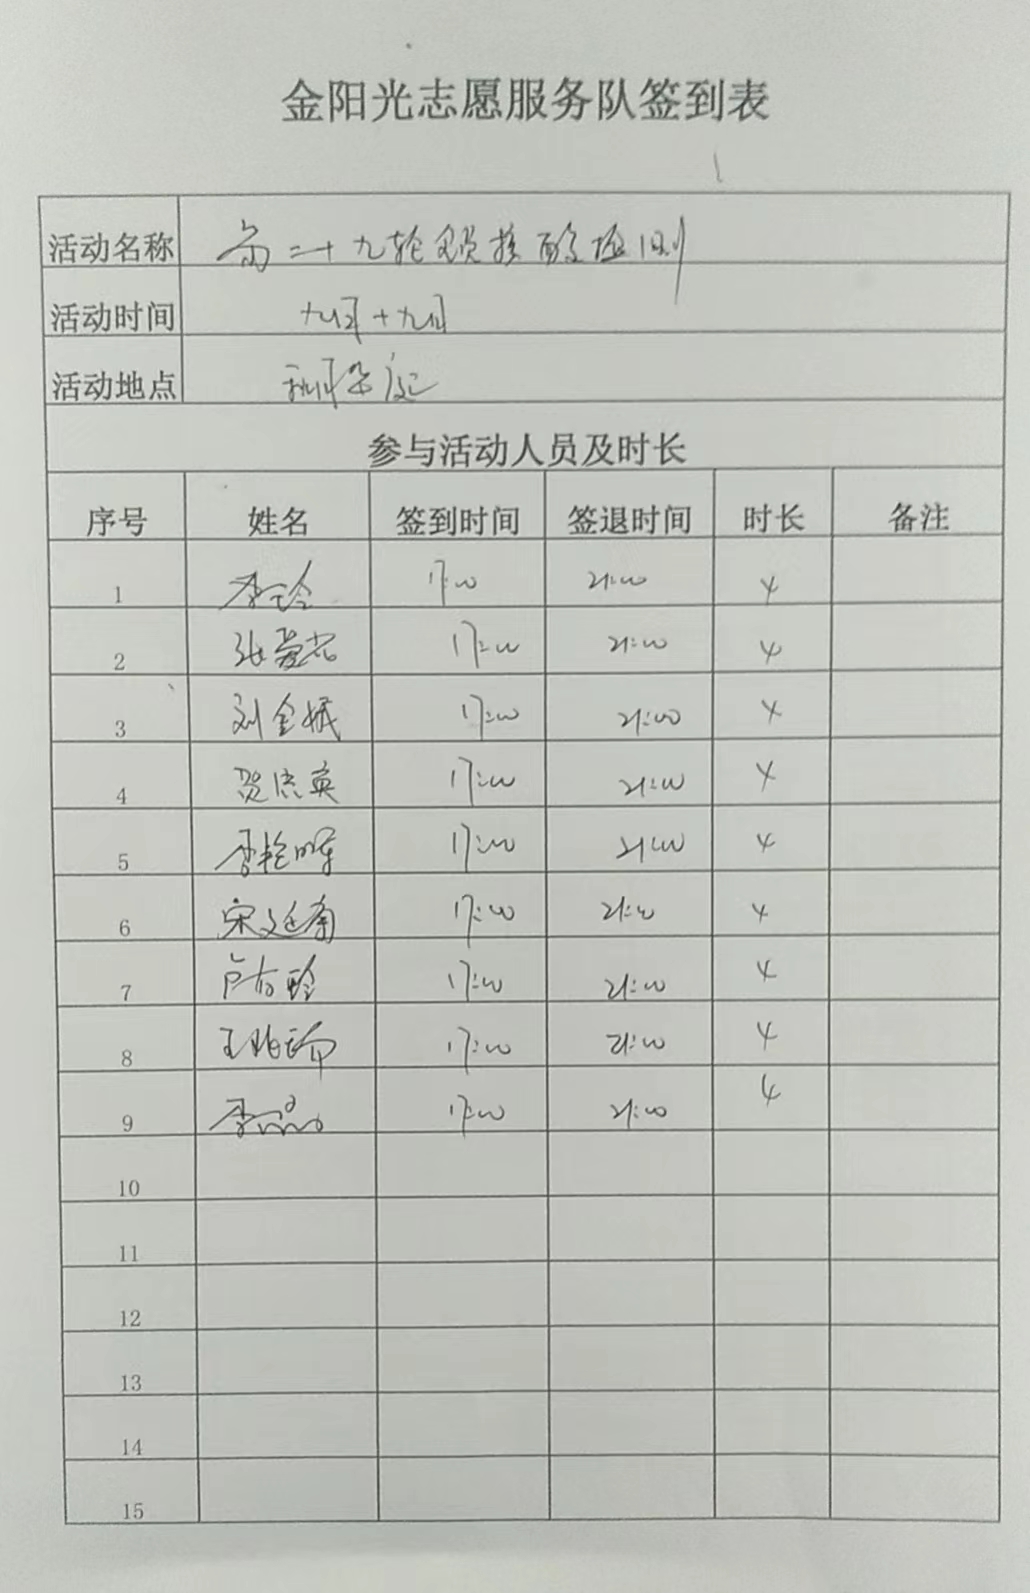 金阳光志愿服务队签到表
活动名称 第二十九轮全员核酸检测
活动时间 九月十九日
活动地点
参与活动人员及时长
序号 姓名 签到时间 签退时间 时长 备注
1 李玲 17:00 21:00 4
2 张爱花 17:00 21:00 4
3 刘金娥 17:00 21:00 4
4 贺信英 17:00 21:00 4
5 李艳晖 17:00 21:00 4
6 宋文廷 17:00 21:00 4
7 卢存玲 17:00 21:00 4
8 王 17:00 21:00 4
9 李晶晶 17:00 21:00 4
10
11
12
13
14
15